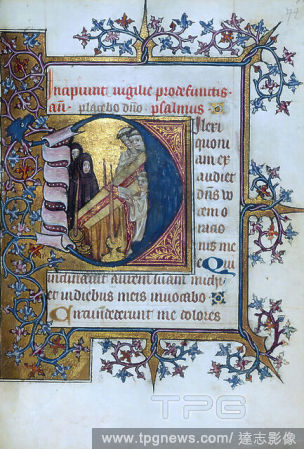 Incipiunt vigilie pro defunctis.
añ. placebo dño. psalmus
ilexi
quoni
am ex
audiet
dñs vo
cem o
ratio
nis me
Qui
inclinavit aurem suam michi
et in diebus meis invocabo
Circumdederunt me dolores
TPG
www.tpgnews.com/ 達志影像